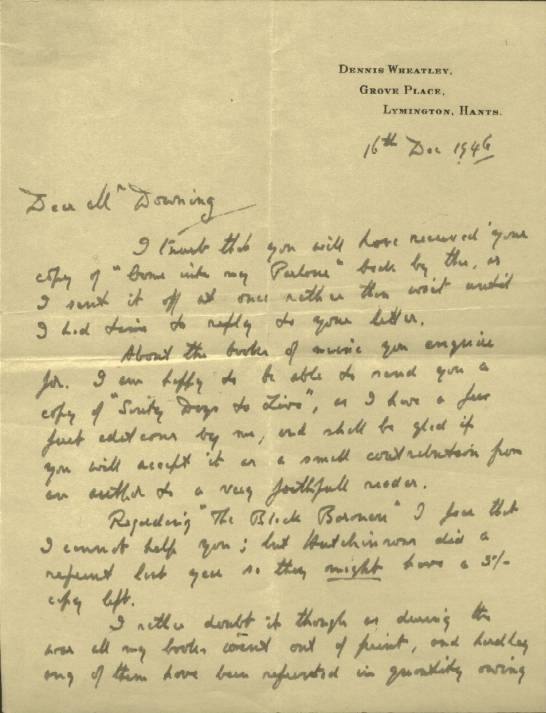 DENNIS WHEATLEY,
GROVE PLACE,
LYMINGTON, HANTS.
16th Dec 1946
Dear Mr Downing
I trust that you will have received your
copy of "Come into my Parlour" back by this, as
I sent it off at once rather than wait until
I had time to reply to your letter.
About the books of mine you enquire
for. I am happy to be able to send you a
copy of "Sixty Days to Live", as I have a few
first editions by me, and shall be glad if
you will accept it as a small contribution from
an author to a very faithfull reader.
Regarding "The Black Baroness" I fear that
I cannot help you; but Hutchinsons did a
reprint last year so they might have a 5/-
copy left.
I rather doubt it though as during the
war all my books went out of print, and hardly
any of them have been reprinted in quantity owing